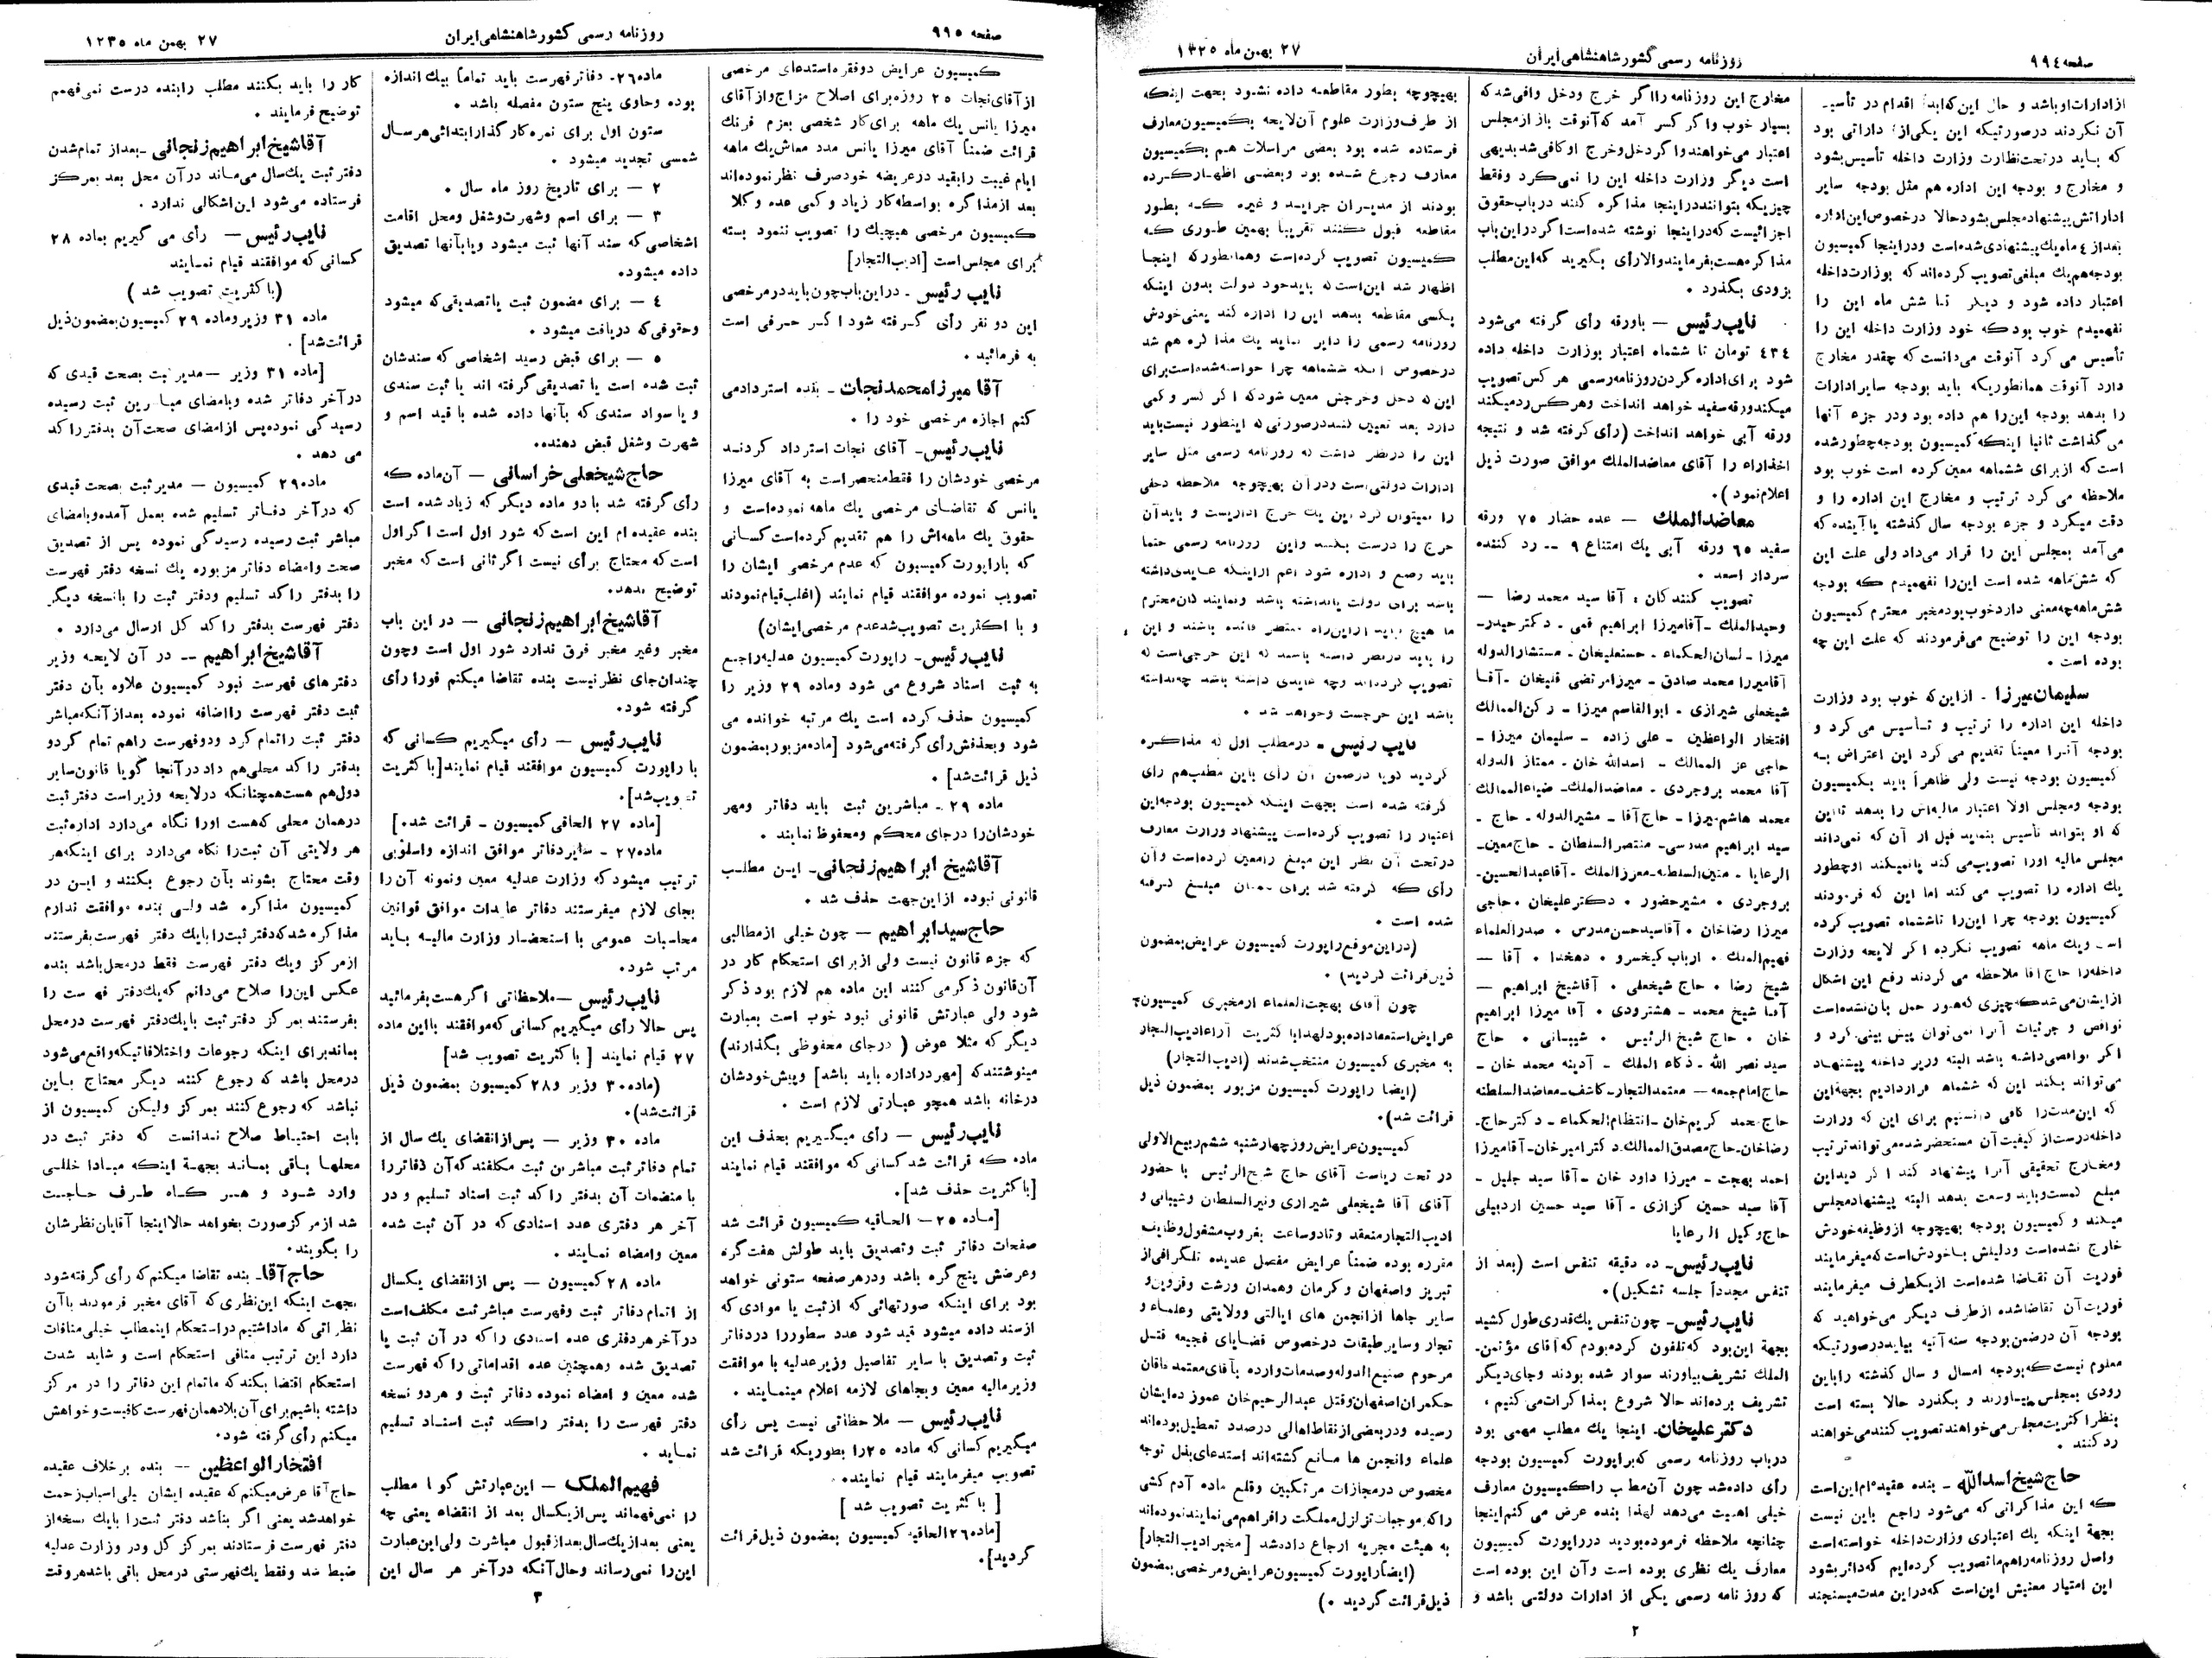 صفحه ۹۹۴
روزنامه رسمی کشور شاهنشاهی ایران
۲۷ بهمن ماه ۱۳۲۵
از ادارات او باشد و حال این که ابداً اقدام در تأسیـ
آن نکردند درصورتیکه این یکی از اداراتی بود
که باید در تحت نظارت وزارت داخله تأسیس بشود
و مخارج و بودجه این اداره هم مثل بودجه سایر
اداراتش پیشنهاد مجلس بشود حالا در خصوص این اداره
بعد از ٤ ماه یك پیشنهادی شده است و در اینجا کمیسیون
بودجه هم یك مبلغی تصویب کرده اند که بوزارت داخله
اعتبار داده شود و دیگر تا شش ماه این را
نفهمیدم خوب بود که خود وزارت داخله این را
تأسیس می کرد آنوقت می دانست که چقدر مخارج
دارد آنوقت همانطوریکه باید بودجه سایر ادارات
را بدهد بودجه این را هم داده بود و در جزء آنها
می گذاشت ثانیا اینکه کمیسیون بودجه چطور شده
است که از برای ششماهه معین کرده است خوب بود
ملاحظه می کرد ترتیب و مخارج این اداره را و
دقت میکرد و جزء بودجه سال گذشته یا آینده که
می آمد بمجلس این را قرار می داد ولی علت این
که شش ماهه شده است این را نفهمیدم که بودجه
شش ماهه چه معنی دارد خوب بود مخبر محترم کمیسیون
بودجه این را توضیح می فرمودند که علت این چه
بوده است .
سلیمان میرزا ـ از این که خوب بود وزارت
داخله این اداره را ترتیب و تأسیس می کرد و
بودجه آنرا معیناً تقدیم می کرد این اعتراض به
کمیسیون بودجه نیست ولی ظاهراً باید بکمیسیون
بودجه و مجلس اولا اعتبار مالیه اش را بدهد تا این
که او بتواند تأسیس بنماید قبل از آن که نمی داند
مجلس مالیه او را تصویب می کند یا نمیکند او چطور
یك اداره را تصویب می کند اما این که فرمودند
کمیسیون بودجه چرا این را تا ششماه تصویب کرده
است و یك ماهه تصویب نکرده اگر لایحه وزارت
داخله را حاج آقا ملاحظه می کردند رفع این اشکال
از ایشان می شد که چیزی که هنوز عمل بآن نشده است
نواقص و جزئیات آنرا نمی توان پیش بینی کرد و
اگر نواقصی داشته باشد البته وزیر داخله پیشنهاد
می تواند بکند این که ششماه قرار دادیم بجهة این
که این مدت را کافی دانستیم برای این که وزارت
داخله درست از کیفیت آن مستحضر شده می تواند ترتیب
و مخارج تحقیقی آنرا پیشنهاد کند اگر دید این
مبلغ کمست و باید وسعت بدهد البته پیشنهاد مجلس
میکند و کمیسیون بودجه بهیچوجه از وظیفه خودش
خارج نشده است و دلیلش با خودش است که میفرمایند
فوریت آن تقاضا شده است از یکطرف میفرمایند
فوریت آن تقاضا شده از طرف دیگر می خواهید که
بودجه آن در ضمن بودجه سنه آتیه بیاید در صورتیکه
معلوم نیست که بودجه امسال و سال گذشته را باین
زودی بمجلس بیاورند و بگذرد حالا بسته است
بنظر اکثریت مجلس می خواهند تصویب کنند می خواهند
رد کنند .
حاج شیخ اسدالله ـ بنده عقیده ام این است
که این مذاکراتی که می شود راجع باین نیست
بجهة اینکه یك اعتباری وزارت داخله خواسته است
و اصل روزنامه را هم ما تصویب کرده ایم که دائر بشود
این اعتبار معنیش این است که در این مدت میسنجند
مخارج این روزنامه را اگر خرج و دخل وافی شد که
بسیار خوب و اگر کسر آمد که آنوقت باز از مجلس
اعتبار می خواهند و اگر دخل و خرج او کافی شد بدیهی
است دیگر وزارت داخله این را نمی کرد و فقط
چیزیکه بتوانند در اینجا مذاکره کنند در باب حقوق
اجزائیست که در اینجا نوشته شده است اگر در این باب
مذاکره هست بفرمایند والا رأی بگیرید که این مطلب
بزودی بگذرد .
نایب رئیس — با ورقه رأی گرفته می شود
٤٣٤ تومان تا ششماه اعتبار بوزارت داخله داده
شود برای اداره کردن روزنامه رسمی هر کس تصویب
میکند ورقه سفید خواهد انداخت و هر کس رد میکند
ورقه آبی خواهد انداخت (رأی گرفته شد و نتیجه
اخذ آراء را آقای معاضدالملك موافق صورت ذیل
اعلام نمود ).
معاضدالملك — عده حضار ۷٥ ورقه
سفید ٦٥ ورقه آبی یك امتناع ۹ — رد کننده
سردار اسعد .
تصویب کنندگان : آقا سید محمد رضا —
وحیدالملك ـ آقا میرزا ابراهیم قمی ـ دکتر حیدرـ
میرزا ـ لسان الحکماء ـ حسنعلیخان ـ مستشارالدوله
آقا میرزا محمد صادق ـ میرزا مرتضی قلیخان ـ آقا
شیخعلی شیرازی ـ ابوالقاسم میرزا ـ رکن الممالك
افتخار الواعظین ـ علی زاده ـ سلیمان میرزا ـ
حاجی عز الممالك ـ اسدالله خان ـ ممتاز الدوله
آقا محمد بروجردی ـ معاضدالملك ـ ضیاءالممالك
محمد هاشم میرزا ـ حاج آقا ـ مشیرالدوله ـ حاج ـ
سید ابراهیم مدرس ـ منتصر السلطان ـ حاج معین ـ
الرعایا ـ متین السلطنه ـ معززالملك ـ آقا عبدالحسین ـ
بروجردی ٠ مشیر حضور ٠ دکتر علیخان ٠ حاجی
میرزا رضاخان ٠ آقا سید حسن مدرس ٠ صدرالعلماء
فهیم الملك ٠ ارباب کیخسرو ٠ دهخدا ٠ آقا —
شیخ رضا ٠ حاج شیخعلی ٠ آقا شیخ ابراهیم —
آقا شیخ محمد ـ هشترودی ٠ آقا میرزا ابراهیم
خان ٠ حاج شیخ الرئیس ٠ شیبانی ٠ حاج
سید نصر الله ـ ذکاء الملك ـ آدینه محمد خان ـ
حاج امام جمعه — معتمدالتجار ـ کاشف ـ معاضدالسلطنه
حاج محمد کریم خان ـ انتظام الحکماء ـ دکتر حاج ـ
رضاخان ـ حاج مصدق الممالك ـ دکتر امیر خان ـ آقا میرزا
احمد بهجت ـ میرزا داود خان ـ آقا سید جلیل ـ
آقا سید حسین کزازی ـ آقا سید حسین اردبیلی
حاج وکیل الرعایا
نایب رئیس ـ ده دقیقه تنفس است (بعد از
تنفس مجدداً جلسه تشکیل).
نایب رئیس ـ چون تنفس یك قدری طول کشید
بجهة این بود که تلفون کرده بودم که آقای مؤتمن ـ
الملك تشریف بیاورند سوار شده بودند و جای دیگر
تشریف برده اند حالا شروع بمذاکرات می کنیم .
دکتر علیخان ـ اینجا یك مطلب مهمی بود
در باب روزنامه رسمی که براپورت کمیسیون بودجه
رأی داده شد چون آن مطلب را کمیسیون معارف
خیلی اهمیت می دهد لهذا بنده عرض می کنم اینجا
چنانچه ملاحظه فرموده بودید در راپورت کمیسیون
معارف یك نظری بوده است و آن این بوده است
که روزنامه رسمی یکی از ادارات دولتی باشد و
بهیچوجه بطور مقاطعه داده نشود بجهت اینکه
از طرف وزارت علوم آن لایحه بکمیسیون معارف
فرستاده شده بود بعضی مراسلات هم بکمیسیون
معارف رجوع شده بود و بعضی اظهار کرده
بودند از مدیران جراید و غیره که بطور
مقاطعه قبول کنند تقریباً بهمین طوری که
کمیسیون تصویب کرده است و همانطور که اینجا
اظهار شد این است که باید خود دولت بدون اینکه
بکسی مقاطعه بدهد این را اداره کند یعنی خودش
روزنامه رسمی را دایر نماید یك مذاکره هم شد
در خصوص اینکه ششماهه چرا خواسته شده است برای
این که دخل و خرجش معین شود که اگر کسر و کمی
دارد بعد تعیین کنند در صورتی که اینطور نیست باید
این را در نظر داشت که روزنامه رسمی مثل سایر
ادارات دولتی است و در آن بهیچوجه ملاحظه دخلی
را نمیتوان کرد این یك خرج اداریست و باید آن
خرج را درست بکنند و این روزنامه رسمی حتما
باید وضع و اداره شود اعم از اینکه عایدی داشته
باشد برای دولت یا نداشته باشد و نمایندگان محترم
ما هیچ نباید از این راه منتظر فائده باشند و این
را باید در نظر داشته باشند که این خرجی است که
تصویب کرده اند و چه عایدی داشته باشد چه نداشته
باشد این خرجست و خواهد شد .
نایب رئیس ـ در مطلب اول که مذاکره
کردید گویا در ضمن آن رأی باین مطلب هم رأی
گرفته شده است بجهت اینکه کمیسیون بودجه این
اعتبار را تصویب کرده است پیشنهاد وزارت معارف
در تحت آن نظر این مبلغ را معین کرده است و آن
رأی که گرفته شد برای همان مبلغ گرفته
شده است .
(در این موقع راپورت کمیسیون عرایض بمضمون
ذیل قرائت گردید) .
چون آقای بهجت العلماء از مخبری کمیسیون
عرایض استعفا داده بود لهذا با کثریت آراء ادیب التجار
به مخبری کمیسیون منتخب شدند (ادیب التجار)
(ایضا راپورت کمیسیون مزبور بمضمون ذیل
قرائت شد).
کمیسیون عرایض روز چهارشنبه ششم ربیع الاولی
در تحت ریاست آقای حاج شیخ الرئیس با حضور
آقای آقا شیخعلی شیرازی و نیرالسلطان و شیبانی و
ادیب التجار منعقد و تا دو ساعت بغروب مشغول وظایف
مقرره بوده ضمناً عرایض مفصل عدیده تلگرافی از
تبریز و اصفهان و کرمان و همدان و رشت و قزوین و
سایر جاها از انجمن های ایالتی و ولایتی و علماء و
تجار و سایر طبقات در خصوص قضایای فجیعه قتل
مرحوم صنیع الدوله و صدمات وارده بآقای معتمد خاقان
حکمران اصفهان و قتل عبدالرحیم خان عموزاده ایشان
رسیده و در بعضی از نقاط اهالی در صدد تعطیل بوده اند
علماء و انجمن ها مانع گشته اند استدعای بذل توجه
مخصوص در مجازات مرتکبین و قلع ماده آدم کشی
را که موجبات تزلزل مملکت را فراهم می نمایند نموده اند
به هیئت مجریه ارجاع داده شد [مخبر ادیب التجار]
(ایضاً راپورت کمیسیون عرایض و مرخصی بمضمون
ذیل قرائت گردید .)
۲
صفحه ۹۹٥
روزنامه رسمی کشور شاهنشاهی ایران
۲۷ بهمن ماه ۱۲۳٥
کمیسیون عرایض دو فقره استدعای مرخصی
از آقای نجات ۲٥ روزه برای اصلاح مزاج و از آقای
میرزا یانس یك ماهه برای کار شخصی بعزم فرنك
قرائت ضمناً آقای میرزا یانس مدد معاش یك ماهه
ایام غیبت را بقید در عریضه خود صرف نظر نموده اند
بعد از مذاکره بواسطه کار زیاد و کمی عده وکلا
کمیسیون مرخصی هیچیك را تصویب ننمود بسته
برای مجلس است [ادیب التجار]
نایب رئیس ـ در این باب چون باید در مرخصی
این دو نفر رأی گرفته شود اگر حرفی است
به فرمائید .
آقا میرزا محمد نجات ـ بنده استرداد می
کنم اجازه مرخصی خود را .
نایب رئیس ـ آقای نجات استرداد کردند
مرخصی خودشان را فقط منحصر است به آقای میرزا
یانس که تقاضای مرخصی یك ماهه نموده است و
حقوق یك ماهه اش را هم تقدیم کرده است کسانی
که با راپورت کمیسیون که عدم مرخصی ایشان را
تصویب نموده موافقند قیام نمایند (اغلب قیام نمودند
و با اکثریت تصویب شد عدم مرخصی ایشان)
نایب رئیس ـ راپورت کمیسیون عدلیه راجع
به ثبت اسناد شروع می شود و ماده ۲۹ وزیر را
کمیسیون حذف کرده است یك مرتبه خوانده می
شود و بحذفش رأی گرفته می شود [ماده مزبور بمضمون
ذیل قرائت شد] .
ماده ۲۹ ـ مباشرین ثبت باید دفاتر و مهر
خودشان را در جای محکم و محفوظ نمایند .
آقا شیخ ابراهیم زنجانی ـ این مطلب
قانونی نبوده از این جهت حذف شد .
حاج سید ابراهیم — چون خیلی از مطالبی
که جزء قانون نیست ولی از برای استحکام کار در
آن قانون ذکر می کنند این ماده هم لازم بود ذکر
شود ولی عبارتش قانونی نبود خوب است بعبارت
دیگر که مثلا عوض ( در جای محفوظی بگذارند)
مینوشتند که [مهر در اداره باید باشد] و پیش خودشان
در خانه باشد همچو عبارتی لازم است .
نایب رئیس — رأی میگیریم بحذف این
ماده که قرائت شد کسانی که موافقند قیام نمایند
[با کثریت حذف شد].
[ماده ۲٥ — الحاقیه کمیسیون قرائت شد
صفحات دفاتر ثبت و تصدیق باید طولش هفت گره
و عرضش پنج گره باشد و در هر صفحه ستونی خواهد
بود برای اینکه صورتهائی که از ثبت یا موادی که
از سند داده میشود قید شود عدد سطور را در دفاتر
ثبت و تصدیق با سایر تفاصیل وزیر عدلیه با موافقت
وزیر مالیه معین و بجاهای لازمه اعلام مینمایند .
نایب رئیس — ملاحظاتی نیست پس رأی
میگیریم کسانی که ماده ۲٥ را بطوریکه قرائت شد
تصویب میفرمایند قیام نمایند .
[ با کثریت تصویب شد ]
[ماده ۲٦ الحاقیه کمیسیون بمضمون ذیل قرائت
گردید].
ماده ۲٦ـ دفاتر فهرست باید تماماً بیك اندازه
بوده و حاوی پنج ستون مفصله باشد .
ستون اول برای نمره کار گذار ابتدائی هر سال
شمسی تجدید میشود .
۲ — برای تاریخ روز ماه سال .
۳ — برای اسم و شهرت و شغل و محل اقامت
اشخاصی که سند آنها ثبت میشود و یا بآنها تصدیق
داده میشود.
٤ — برای مضمون ثبت یا تصدیقی که میشود
و حقوقی که دریافت میشود .
٥ — برای قبض رسید اشخاصی که سندشان
ثبت شده است یا تصدیقی گرفته اند یا ثبت سندی
و یا سواد سندی که بآنها داده شده با قید اسم و
شهرت و شغل قبض دهنده.
حاج شیخعلی خراسانی — آن ماده که
رأی گرفته شد با دو ماده دیگر که زیاد شده است
بنده عقیده ام این است که شور اول است اگر اول
است که محتاج برأی نیست اگر ثانی است که مخبر
توضیح بدهد.
آقا شیخ ابراهیم زنجانی — در این باب
مخبر و غیر مخبر فرق ندارد شور اول است و چون
چندان جای نظر نیست بنده تقاضا میکنم فورا رأی
گرفته شود.
نایب رئیس — رأی میگیریم کسانی که
با راپورت کمیسیون موافقند قیام نمایند[با کثریت
تصویب شد].
[ماده ۲۷ الحاقی کمیسیون ـ قرائت شد.]
ماده ۲۷ ـ سایر دفاتر موافق اندازه و اسلوبی
ترتیب میشود که وزارت عدلیه معین و نمونه آن را
بجای لازم میفرستند دفاتر عایدات موافق قوانین
محاسبات عمومی با استحضار وزارت مالیه باید
مرتب شود.
نایب رئیس — ملاحظاتی اگر هست بفرمائید
پس حالا رأی میگیریم کسانی که موافقند با این ماده
۲۷ قیام نمایند [ با کثریت تصویب شد]
(ماده ۳۰ وزیر و ۲۸ کمیسیون بمضمون ذیل
قرائت شد).
ماده ۳۰ وزیر — پس از انقضای یك سال از
تمام دفاتر ثبت مباشرین ثبت مکلفند که آن دفاتر را
با منضمات آن بدفتر راکد ثبت اسناد تسلیم و در
آخر هر دفتری عدد اسنادی که در آن ثبت شده
معین و امضاء نمایند .
ماده ۲۸ کمیسیون — پس از انقضای یکسال
از اتمام دفاتر ثبت و فهرست مباشر ثبت مکلف است
در آخر هر دفتری عده اسنادی را که در آن ثبت یا
تصدیق شده و همچنین عده اقداماتی را که فهرست
شده معین و امضاء نموده دفاتر ثبت و هر دو نسخه
دفتر فهرست را بدفتر راکد ثبت اسناد تسلیم
نماید .
فهیم الملك — این عبارتش گویا مطلب
را نمی فهماند پس از یکسال بعد از انقضاء یعنی چه
یعنی بعد از یك سال بعد از قبول مباشرت ولی این عبارت
این را نمی رساند و حال آنکه در آخر هر سال این
کار را باید بکنند مطلب را بنده درست نمی فهمم
توضیح فرمایند .
آقا شیخ ابراهیم زنجانی ـ بعد از تمام شدن
دفتر ثبت یك سال می ماند در آن محل بعد بمرکز
فرستاده می شود این اشکالی ندارد .
نایب رئیس — رأی می گیریم بماده ۲۸
کسانی که موافقند قیام نمایند
(با کثریت تصویب شد )
ماده ۳۱ وزیر و ماده ۲۹ کمیسیون بمضمون ذیل
قرائت شد] .
[ماده ۳۱ وزیر — مدیر ثبت بصحت قیدی که
در آخر دفاتر شده و بامضای مباشرین ثبت رسیده
رسیدگی نموده پس از امضای صحت آن بدفتر راکد
می دهد .
ماده ۲۹ کمیسیون — مدیر ثبت بصحت قیدی
که در آخر دفاتر تسلیم شده بعمل آمده و بامضای
مباشر ثبت رسیده رسیدگی نموده پس از تصدیق
صحت و امضاء دفاتر مزبوره یك نسخه دفتر فهرست
را بدفتر راکد تسلیم و دفتر ثبت را با نسخه دیگر
دفتر فهرست بدفتر راکد کل ارسال می دارد .
آقا شیخ ابراهیم — در آن لایحه وزیر
دفترهای فهرست نبود کمیسیون علاوه بآن دفتر
ثبت دفتر فهرست را اضافه نموده بعد از آنکه مباشر
دفتر ثبت را تمام کرد و دو فهرست را هم تمام کرد و
بدفتر راکد محلی هم داد در آنجا گویا قانون سایر
دول هم هست همچنانکه در لایحه وزیر است دفتر ثبت
در همان محلی که هست او را نگاه می دارد اداره ثبت
هر ولایتی آن ثبت را نگاه می دارد برای اینکه هر
وقت محتاج بشوند بآن رجوع بکنند و این در
کمیسیون مذاکره شد ولی بنده موافقت ندارم
مذاکره شد که دفتر ثبت را با یك دفتر فهرست بفرستند
از مرکز و یك دفتر فهرست فقط در محل باشد بنده
عکس این را صلاح می دانم که یك دفتر فهرست را
بفرستند بمرکز دفتر ثبت با یك دفتر فهرست در محل
بماند برای اینکه رجوعات و اختلافاتیکه واقع می شود
در محل باشد که رجوع کنند دیگر محتاج باین
نباشد که رجوع کنند بمرکز ولیکن کمیسیون از
بابت احتیاط صلاح ندانست که دفتر ثبت در
محلها باقی بماند بجهة اینکه مبادا خللی
وارد شود و هر گاه طرف حاجت
شد از مرکز صورت بخواهد حالا اینجا آقایان نظرشان
را بگویند.
حاج آقا ـ بنده تقاضا میکنم که رأی گرفته شود
بجهت اینکه این نظری که آقای مخبر فرمودند با آن
نظراتی که ما داشتیم در استحکام اینمطلب خیلی منافات
دارد این ترتیب منافی استحکام است و شاید شدت
استحکام اقتضا بکند که ما تمام این دفاتر را در مرکز
داشته باشیم برای آن بلاد همان فهرست کافیست و خواهش
میکنم رأی گرفته شود.
افتخار الواعظین — بنده بر خلاف عقیده
حاج آقا عرض میکنم که عقیده ایشان خیلی اسباب زحمت
خواهد شد یعنی اگر بنا شد دفتر ثبت را با یك نسخه از
دفتر فهرست فرستادند بمرکز کل و در وزارت عدلیه
ضبط شد و فقط یك فهرستی در محل باقی باشد هر وقت
۳